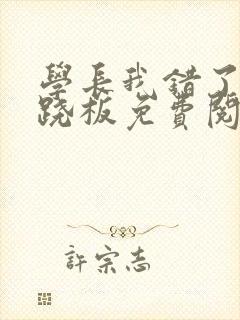 學長我錯了
跷板免費閱
許宗志